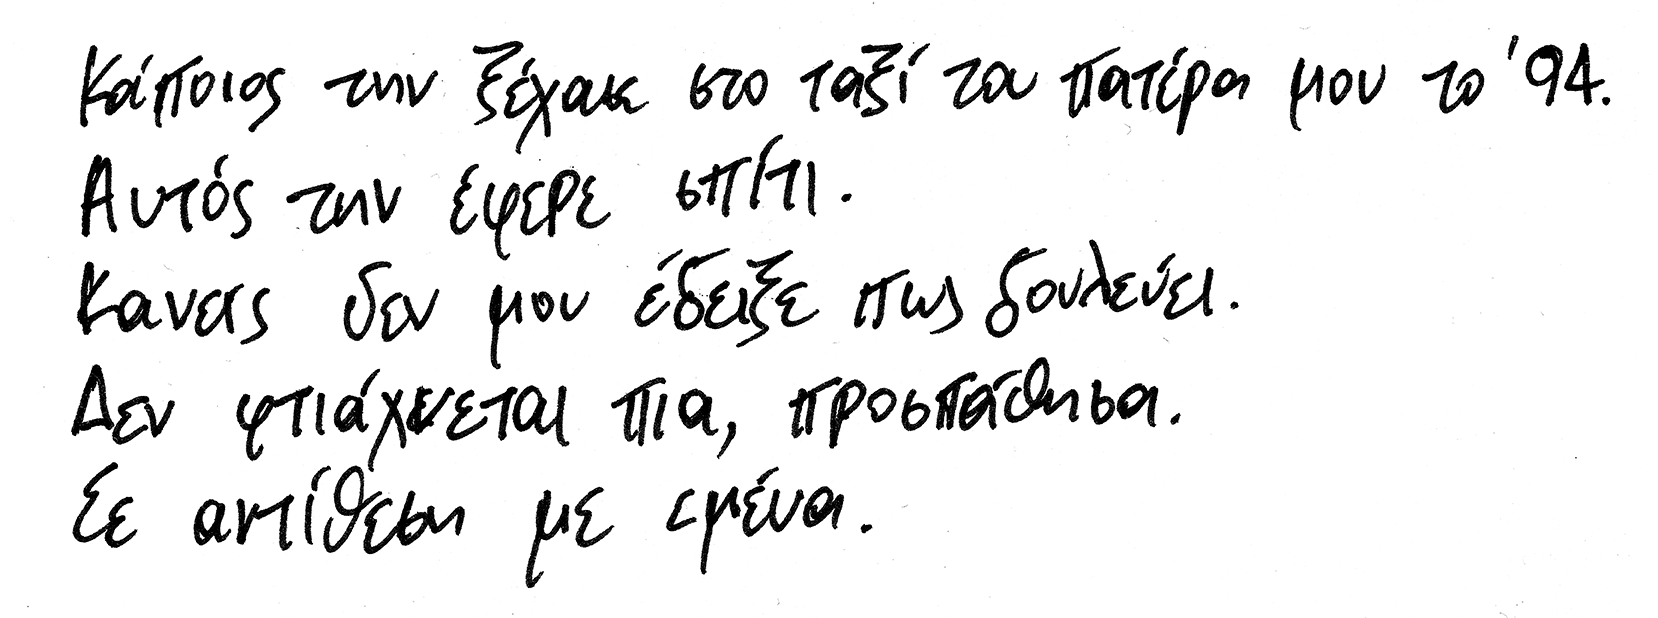 Κάποιος την ξέχασε στο ταξί του πατέρα μου το '94.
Αυτός την έφερε σπίτι.
Κανείς δεν μου έδειξε πως δουλεύει.
Δεν φτιάχνεται πια, προσπάθησα.
Σε αντίθεση με εμένα.